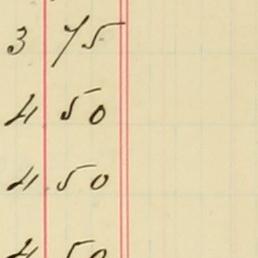 3 75
4 50
4 50
4 50